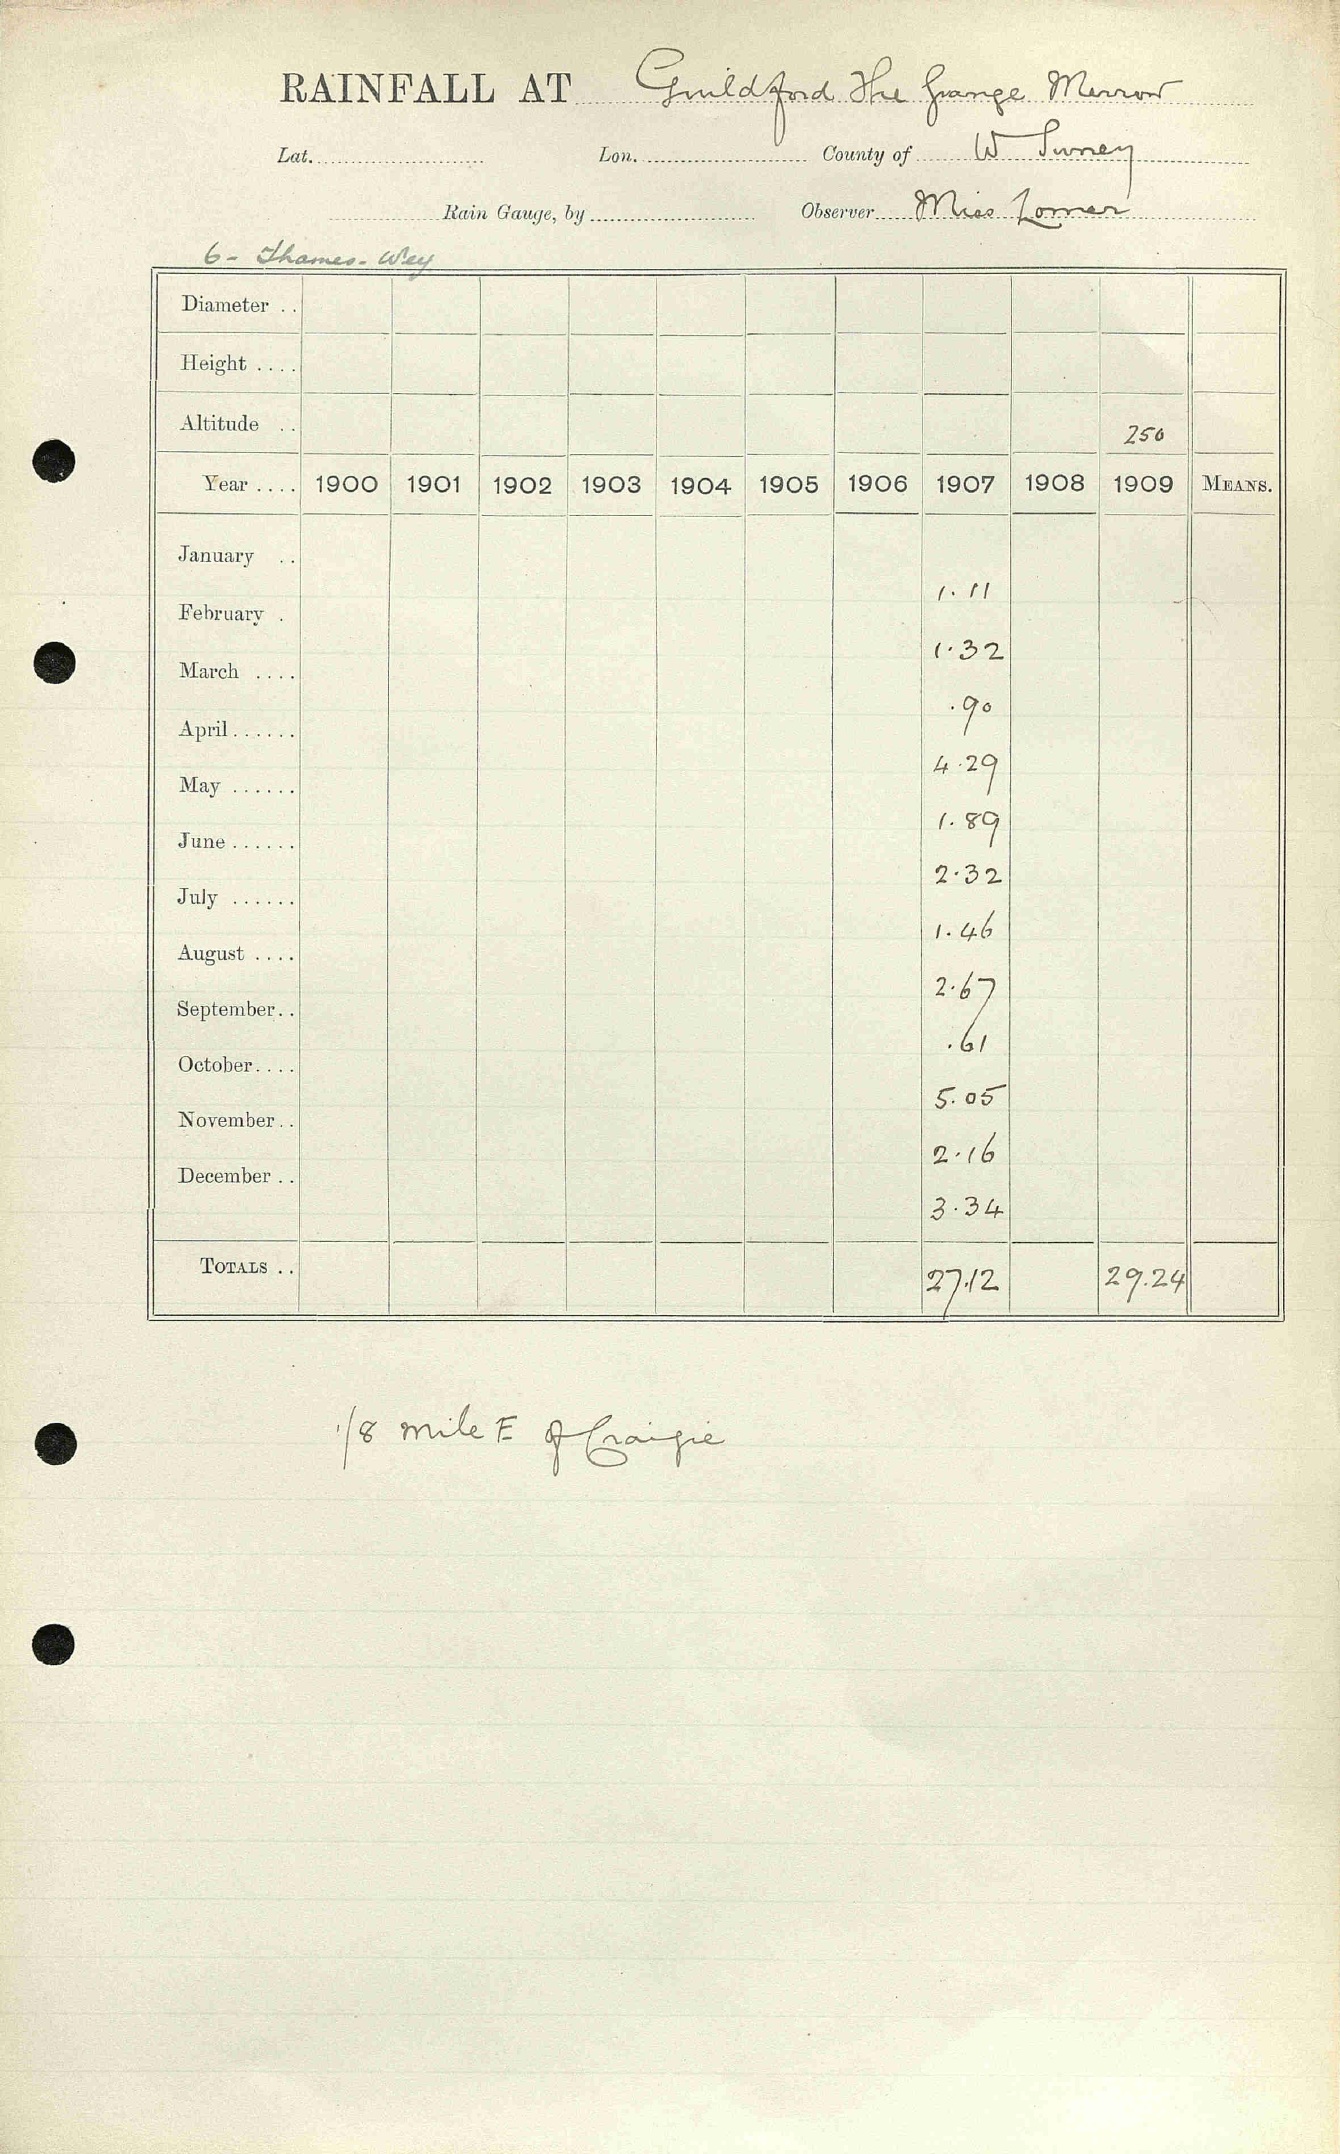 RAINFALL AT Guildford The Grange Merrow
Lat. Lon. County of W Surrey
Rain Gauge, by Observer Miss Lomer
6- Thames- Wey
Diameter ..
Height ....
Altitude .. 250
Year .... 1900 1901 1902 1903 1904 1905 1906 1907 1908 1909 MEANS.
January .. 1.11
February . 1.32
March .... .90
April ...... 4.29
May ...... 1.89
June ...... 2.32
July ...... 1.46
August .... 2.67
September.. .61
October.... 5.05
November.. 2.16
December .. 3.34
TOTALS .. 27.12 29.24
1/8 mile E of Craigie